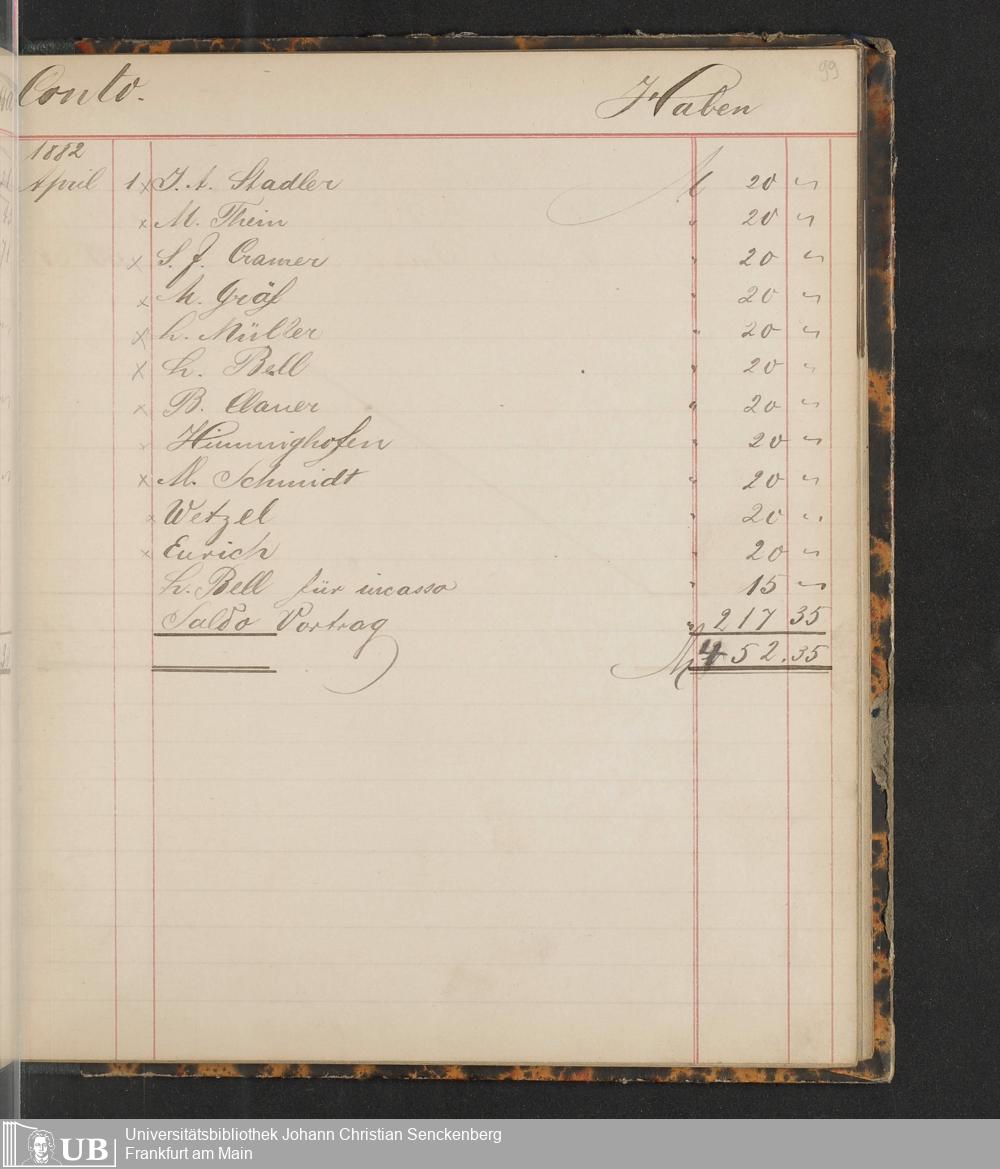 99
Conto. Haben
1882
April 1 x J. A. Stadler M 20 "
x M. Thein " 20 "
x S. J. Cramer " 20 "
x M. Gräf " 20 "
x L. Müller " 20 "
x L. Bell " 20 "
x B. Clauer " 20 "
x Himminghofen " 20 "
x M. Schmidt " 20 "
x Wetzel " 20 "
x Eurich " 20 "
L. Bell für incasso " 15 "
Saldo Vortrag " 217 35
M 452.35
UB Universitätsbibliothek Johann Christian Senckenberg
Frankfurt am Main